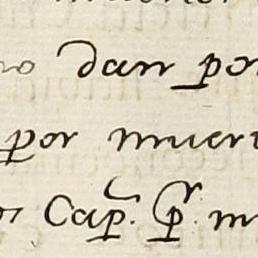 no dan por
por muert
os Cap. pr. m